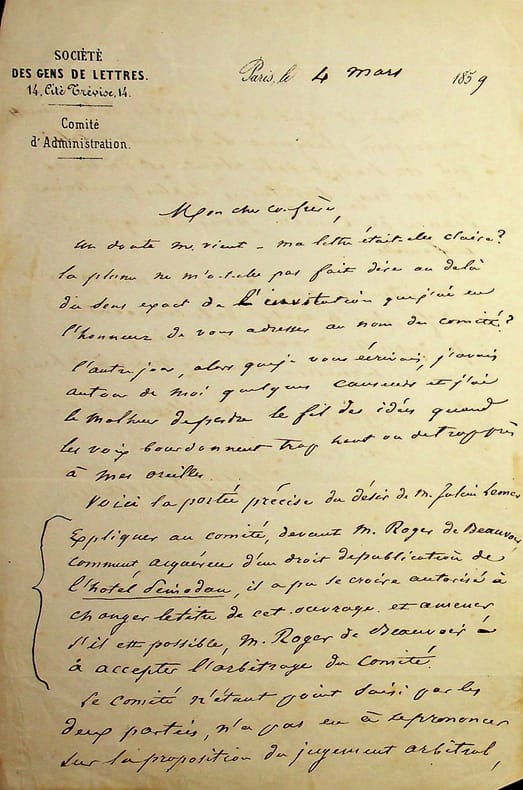 SOCIÉTÉ
DES GENS DE LETTRES.
14, Cité Trévise, 14.
Comité
d'Administration.
Paris, le 4 mars 1859
Mon cher confrère,
un doute me vient – ma lettre était-elle claire?
la plume ne m'a-t-elle pas fait dire au delà
du sens exact de l'invitation que j'ai eu
l'honneur de vous adresser au nom du comité?
l'autre jour, alors que je vous écrivais, j'avais
autour de moi quelques causeurs et j'ai
le malheur de perdre le fil des idées quand
les voix bourdonnent trop haut ou de trop près
à mes oreilles.
Voici la portée précise du désir de M. Julien Lemer
Expliquer au comité, devant M. Roger de Beauvoir
comment acquéreur d'un droit de publication de
l'hotel, il a pu se croire autorisé à
changer le titre de cet ouvrage et amener
s'il est possible, M. Roger de Beauvoir à
à accepter l'arbitrage du Comité.
Le comité n'étant point saisi par les
deux parties, n'a pas eu à se prononcer
sur la proposition du jugement arbitral,